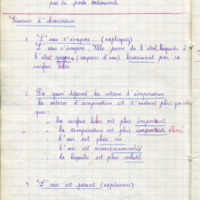 par la porte entrouverte
Résumé d'observation
1. L'eau s'évapore (expliquez)
L'eau s'évapore. Elle passe de l'état liquide à
l'état gazeux (vapeur d'eau) lentement par sa
surface libre
2. De quoi dépend la vitesse d'évaporation
La vitesse d'évaporation est d'autant plus grande
que:
- la surface libre est plus importante
- la température est plus importante
- l'air est plus sec
- l'air est
- le liquide est plus volatil
3. L'air est pesant (expérience)